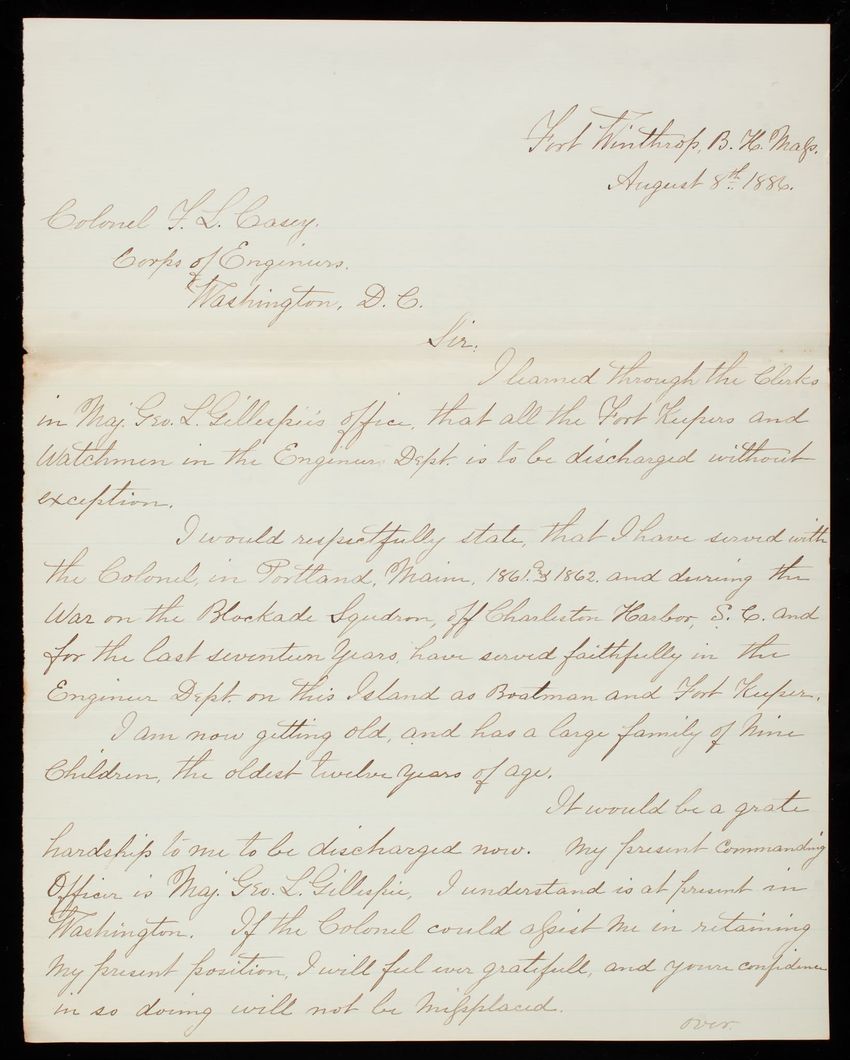 Fort Winthrop, B. H. Mass.
August 8th 1886.
Colonel T. L. Casey.
Corps of Engineers.
Washington, D. C.
Sir:
I learned through the Clerks
in Maj. Geo. L. Gillespie's office, that all the Fort Keepers and
Watchmen in the Engineer Dept. is to be discharged without
exception.
I would respectfully state, that I have served with
the Colonel, in Portland, Maine, 1861. and 1862. and during the
War on the Blockade Squdron, off Charleston Harbor, S. C. and
for the last seventeen years, have served faithfully in the
Engineer Dept. on this Island as Boatman and Fort Keeper.
I am now getting old, and has a large family of Nine
Children, the oldest twelve years of age.
It would be a grate
hardship to me to be discharged now. My present commanding
Officer is Maj. Geo. L. Gillespie, I understand is at present in
Washington. If the Colonel could assist me in retaining
my present position, I will feel ever gratefull, and youre confidence
in so doing will not be missplaced.
over.